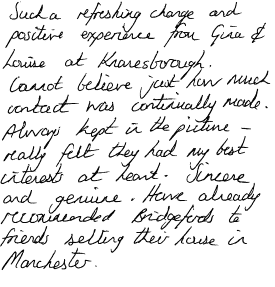 Such a refreshing change and
positive experience from Gina &
Louise at Knaresborough.
Cannot believe just how much
contact was continually made.
Always kept in the picture –
really felt they had my best
interests at heart. Sincere
and genuine. Have already
recommended Bridgefords to
friends selling their house in
Manchester.